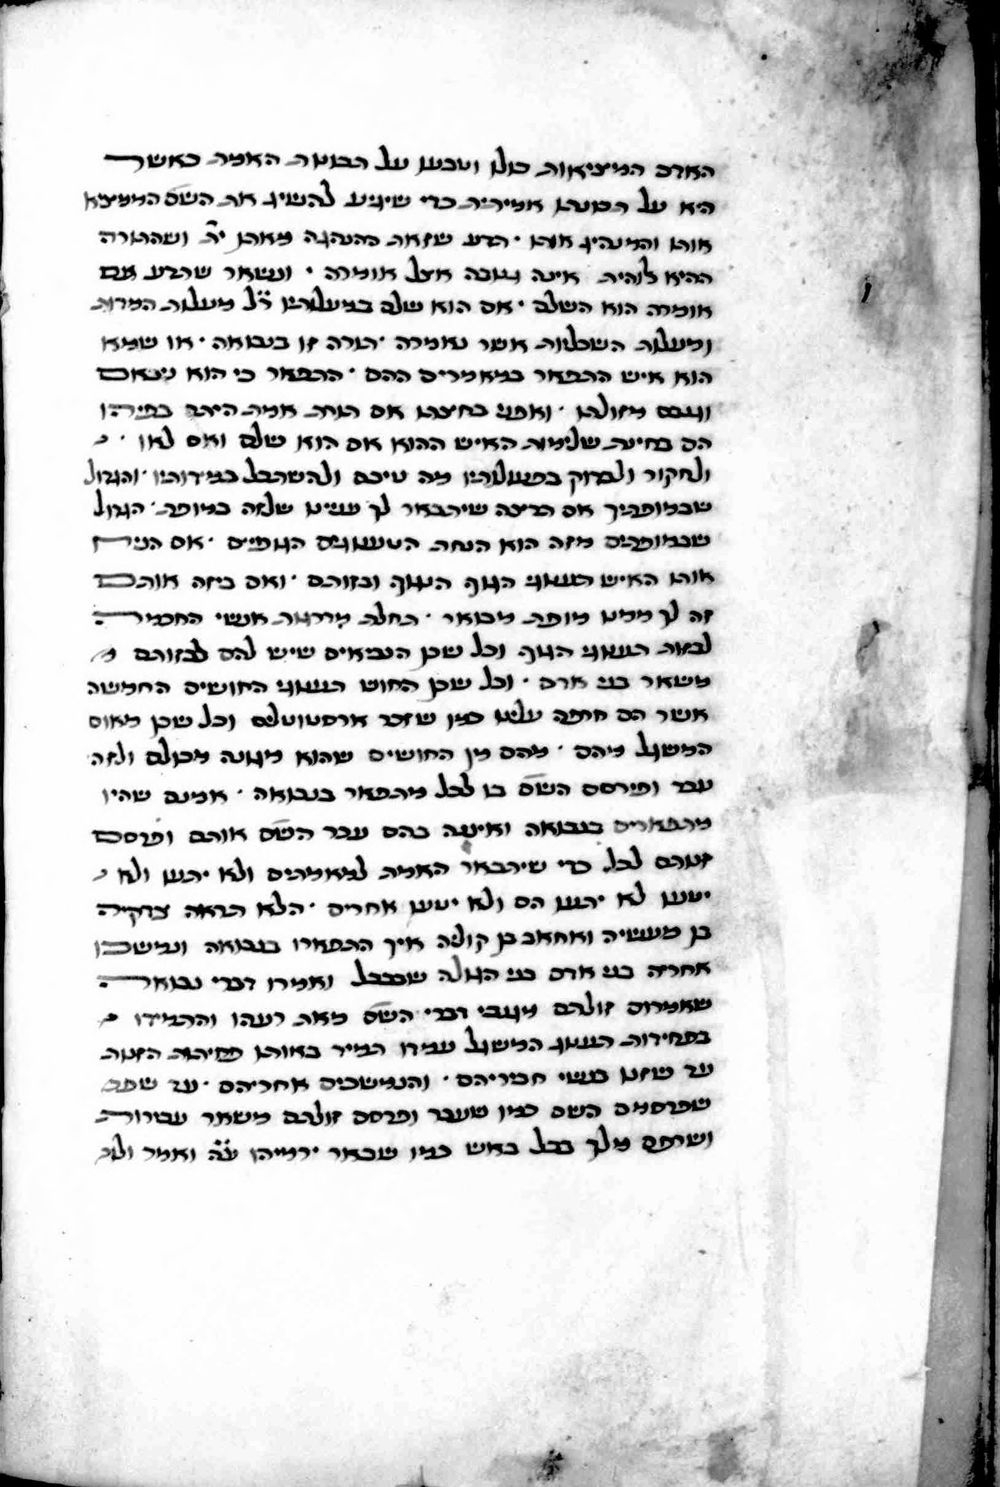 האדם המציאות כולו וטבעו על תכונת האמת כאשר
היא על תכונתו אמיתית כדי שיגיע להשיג את השם הממציא
אותו והמנהיג אותו · תדע שזאת ההנהגה מאתו ית' ושהתורה
ההיא לוהית אינה גנובה אצל אומרה · ונשאר שתדע אם
אומרה הוא השלם · אם הוא שלם במעלותיו ר"ל מעלות המדות
ומעלות השכליות אשר נאמרה תורה זו בנבואה · או שמא
הוא איש התפאר במאמרים ההם · התפאר כי הוא ניבאם
וגנבם מזולתו · ואפני בחינתו אם תהיה אמת היתה בפיהו
הם בחינת שלימות האיש ההוא אם הוא שלם ואם לאו ·
ולחקור ולבדוק בפעולותיו מה טיבם ולהשתכל במידותיו · והגדול
שבמופתיך אם תרצה שיתבאר לך ענינו שלזה במופת · הגדול
שבמופתים מזה הוא הנחת התענוגים הגופיים · אם הניח
אותו האיש תענוגי הגוף הנגוף ובזותם · ואם ביזה אותם
זה לך ממנו מופת מבואר · תחלת מדרגות אנשי החכמה
לבזות תענוגי הגוף וכל שכן הנביאים שיש להם לבזותם
משאר בני אדם · וכל שכן החוש תענוגי החושים החמשה
אשר הם חרפה עלינו כמו שזכר ארסטוטלים וכל שכן מאוס
המשגל מיהם · מהם מן החושים שהוא מגונה מכולם ולזה
עבר ופירסם השם בו לכל מתפאר בנבואה · אמנם שהיו
מתפארים בנבואה ואיננה בהם עבר השם אותם ופרסם
זנותם לכל כדי שיתבאר האמת למאמתים ולא יתעו ולא
יטעו לא יתעו הם ולא יטעו אחרים · הלא תראה צדקיה
בן מעשיה ואחאב בן קוליה איך התפארו בנבואה ונמשכו
אחריה בני אדם בני הגולה שבבבל ואמרו דברי נבואה
שאמרום זולתם מגנבי דברי השם מאת רעהו והתמידו
בפחיזות תענוג המשגל עמדו תמיד באותן הזנות
עד שזנו בנשי חבריהם · והנמשכים אחריהם · עד
שפרסמם השם כמו שעבר ופרסם זולתם משאר עבירות
ושרפם מלך בבל באש כמו שבאר ירמיהו ע"ה ואמר